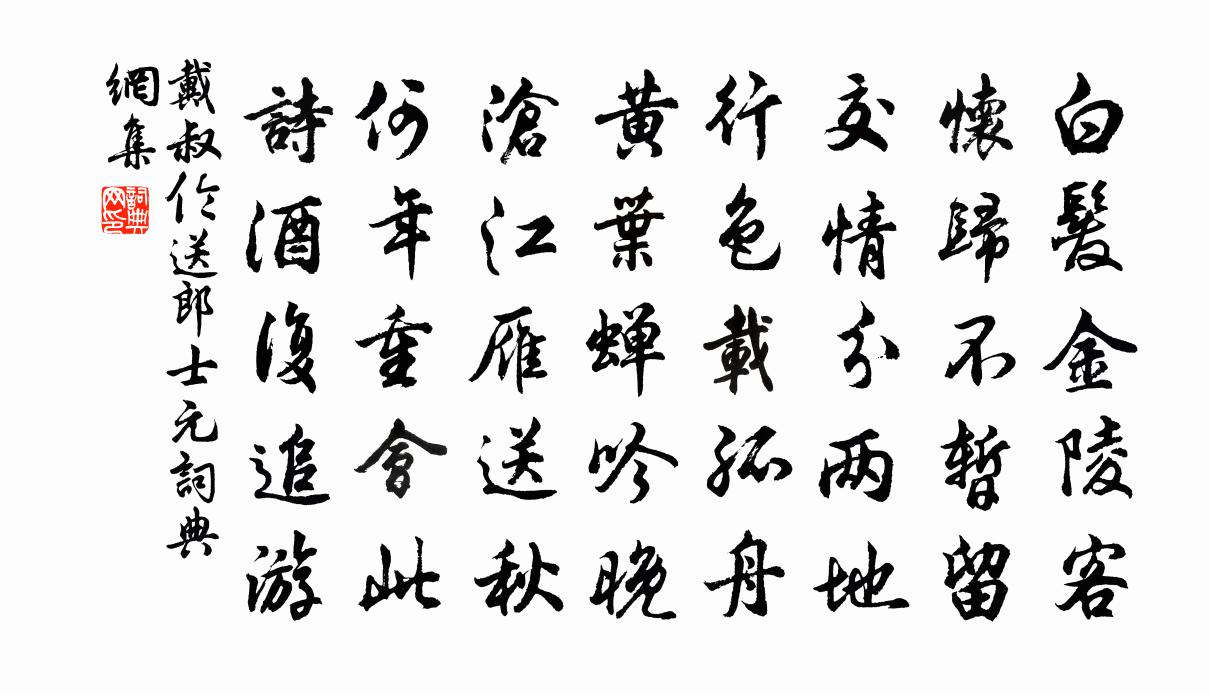 白髮金陵客
懷歸不暫留
交情分兩地
行色載孤舟
黃葉蟬吟晚
滄江雁送秋
何年重會此
詩酒復追游
戴叔伦送郎士元詞典
網集
詞典网印